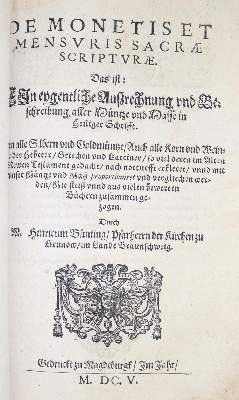 DE MONETIS ET
MENSVRIS SACRÆ
SCRIPTVRÆ.
Das ist:
Ein eygentliche Außrechnung vnd Be-
schreibung aller Müntze vnd Masse in
Heiliger Schrifft.
alle Silbern vnd Goldmüntze / Auch alle Korn vnd Wein
der Hebreer / Griechen vnd Lateiner / so viel deren im Alten
Newen Testament gedacht / nach notturfft erkleret / vnnd mit
vnser Müntz vnd Maß proportionirt vnd verglichen wer-
den / Mit fleis vnnd aus vielen bewerten
Büchern zusammen ge-
zogen.
Durch
M. Henricum Bünting / Pfarherrn der Kirchen zu
Grunow / im Lande Braunschweig.
Gedruckt zu Magdeburgk / Im Jahr /
M. DC. V.